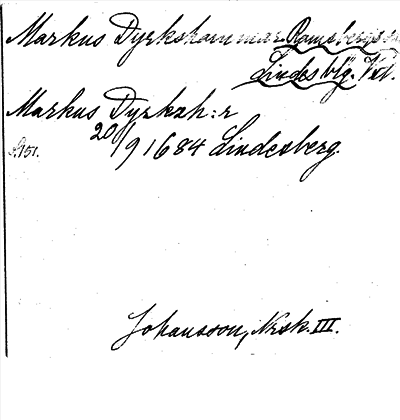 Markus Dyrkshammar Ramsbergs sn
Lindesblg. Vstl.
Markus Dyrkzh:r
20/9 1684 Lindesberg.
s. 151.
Johansson, Nrsk. III.